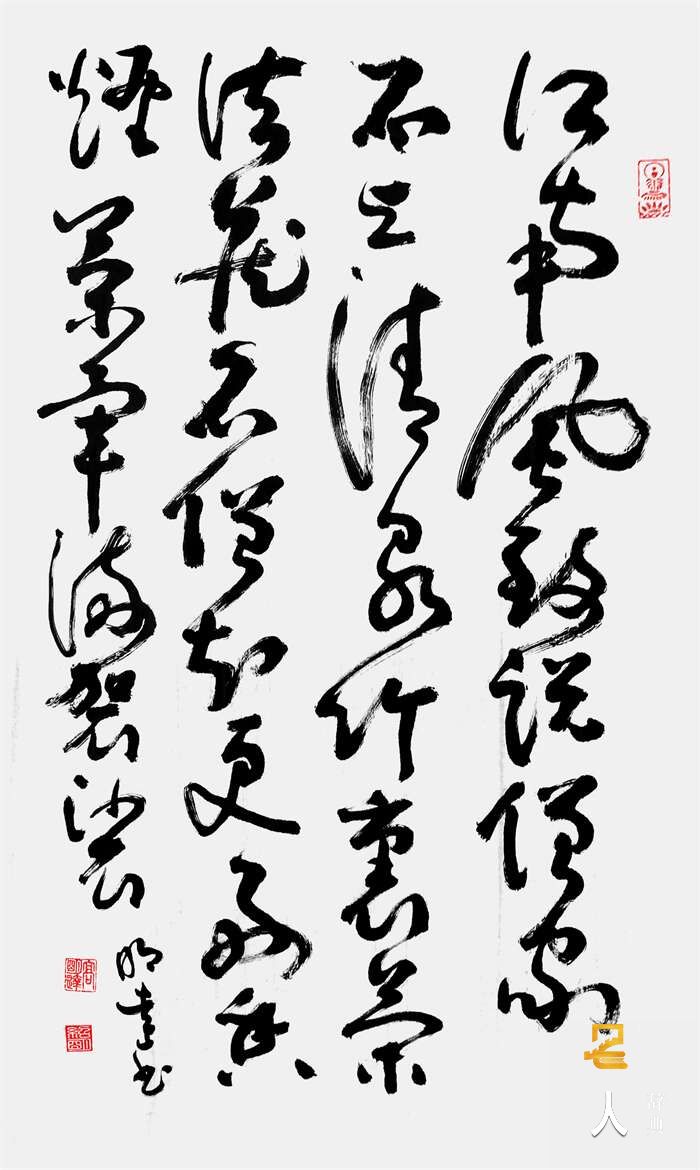 江南風致說僧家
石上清泉竹裏茶
法藏名僧知更好香
煙茶暈滿袈裟
明達書
名人